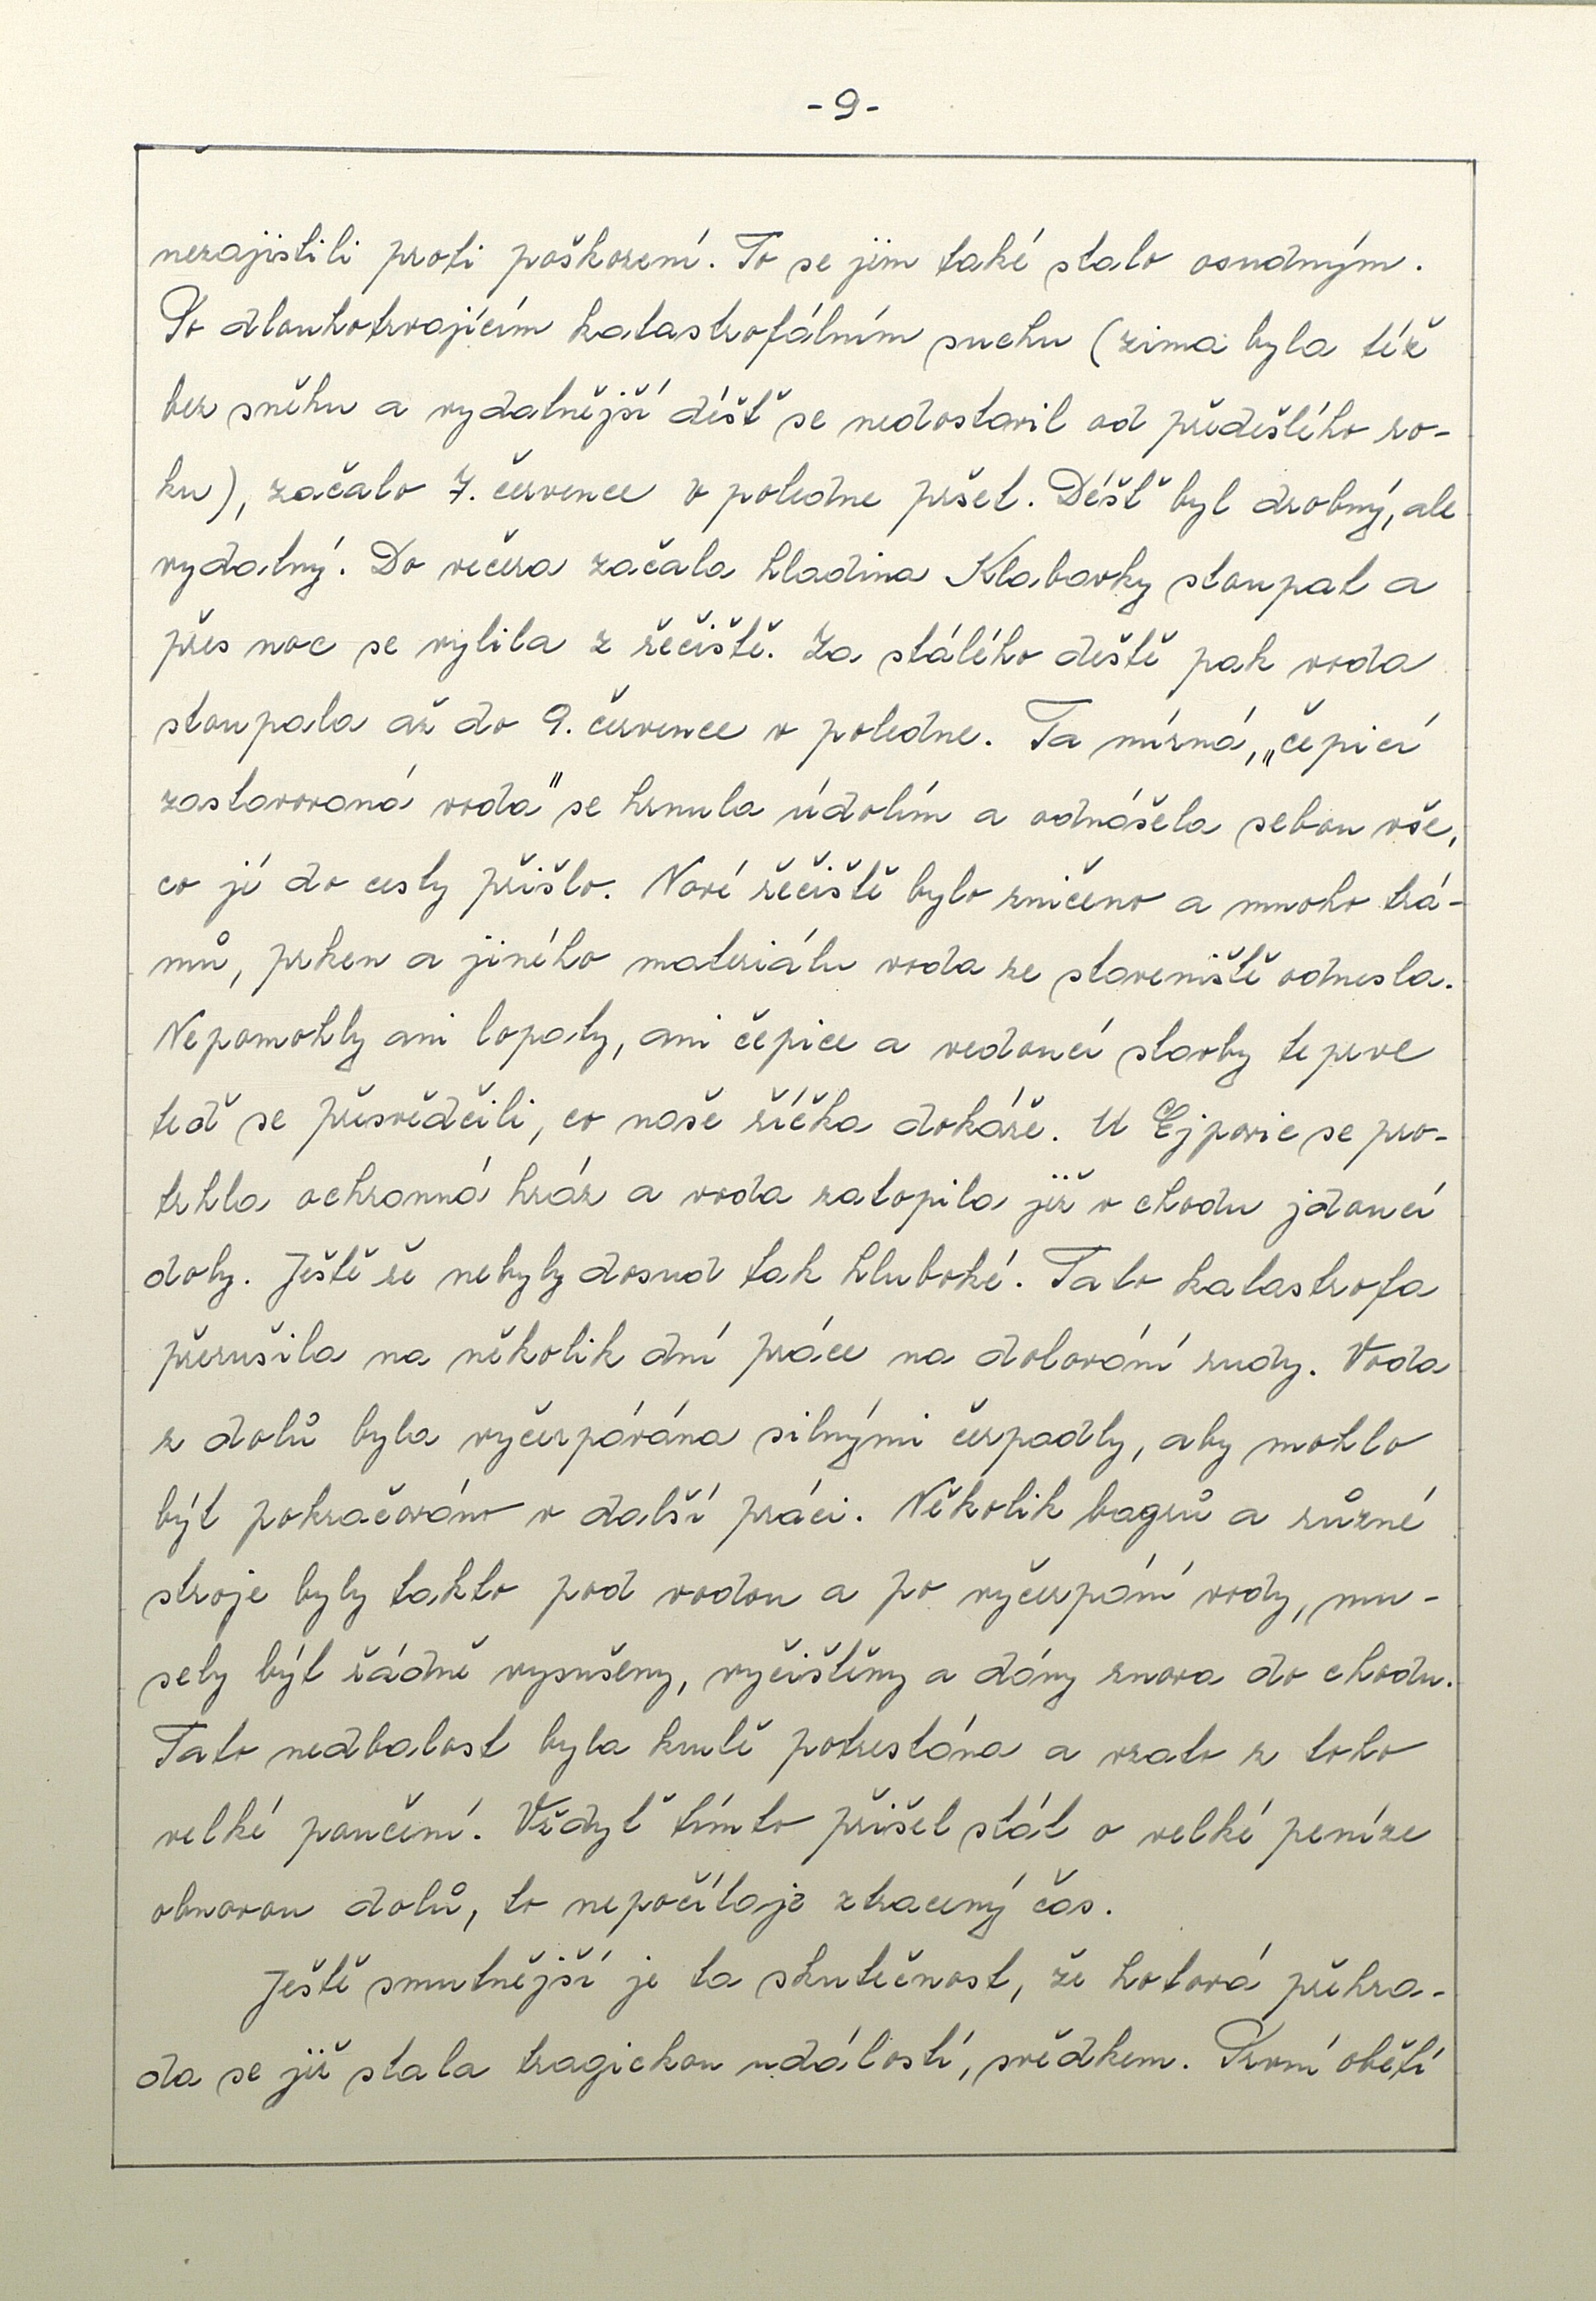 -9-
nezajistili proti poškození. To se jim také stalo osudným.
Po dlouhotrvajícím katastrofálním suchu (zima byla též
bez sněhu a vydatnější déšť se nedostavil od předešlého ro-
ku), začalo 7. července v poledne pršet. Déšť byl drobný, ale
vydatný. Do večera začala hladina Klabavky stoupat a
přes noc se vylila z řečiště. Za stálého deště pak voda
stoupala až do 9. července v poledne. Ta mírná, „čepicí
zastavovaná voda" se hrnula údolím a odnášela sebou vše,
co jí do cesty přišlo. Nové řečiště bylo zničeno a mnoho trá-
mů, prken a jiného materiálu voda ze staveniště odnesla.
Nepomohly ani lopaty, ani čepice a vedoucí stavby teprve
teď se přesvědčili, co naše říčka dokáže. U Ejpovic se pro-
trhla ochranná hráz a voda zatopila již v chodu jdoucí
doly. Ještě že nebyly dosud tak hluboké. Tato katastrofa
přerušila na několik dní práce na dolování rudy. Voda
z dolů byla vyčerpávána silnými čerpadly, aby mohlo
být pokračováno v další práci. Několik bagrů a různé
stroje byly takto pod vodou a po vyčerpání vody, mu-
sely být řádně vysušeny, vyčištěny a dány znova do chodu.
Tato nedbalost byla krutě potrestána a vzato z toho
velké poučení. Vždyť tímto přišel stát o velké peníze
obnovou dolů, to nepočítaje ztracený čas.
Ještě smutnější je ta skutečnost, že hotová přehra-
da se již stala tragickou událostí, svědkem. První obětí